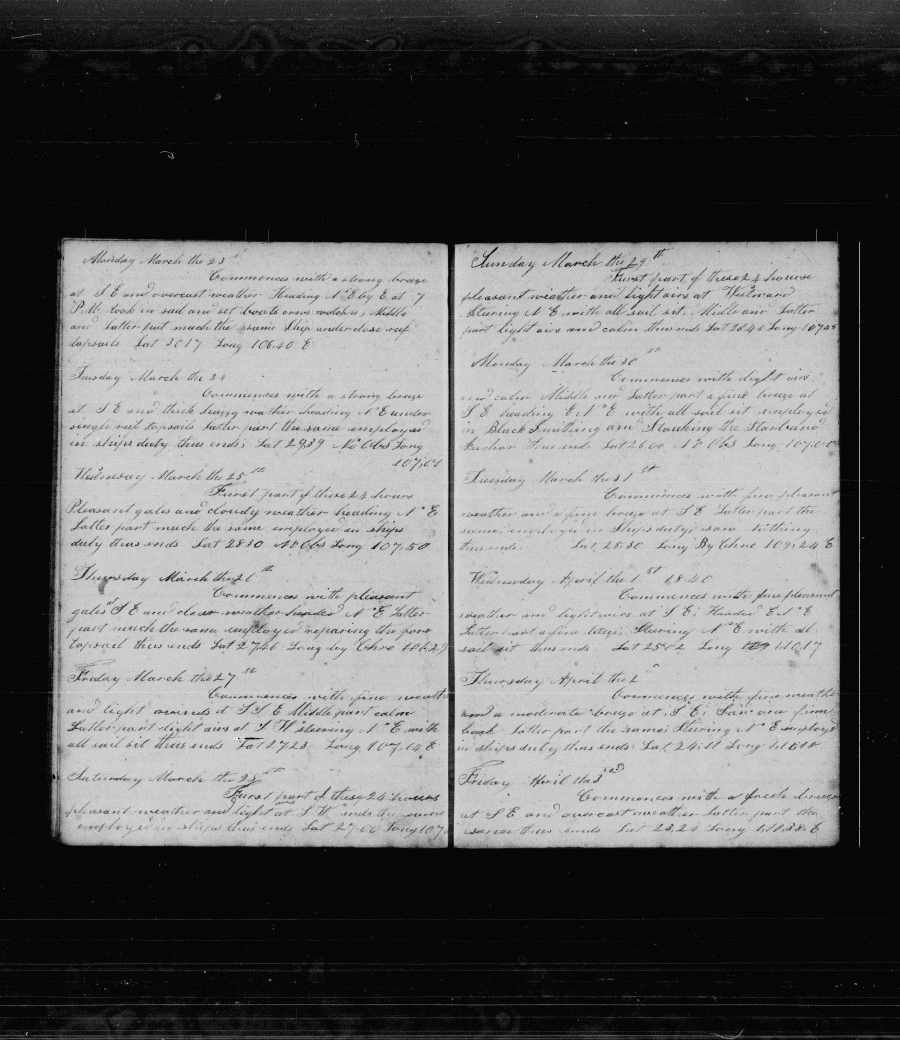 Monday March the 23
Commences with a strong breeze
at S E and overcast weather Heading N E by E at 7
P.M. took in sail and set boats crews watches, Middle
and Latter part much the same Ship under close reef
topsails Lat 3017 Long 106.40 E
Tuesday March the 24
Commences with a strong breeze
at S E and thick weather heading N E under
single reef topsails Latter part the same employed
in ships duty thus ends; Lat 29,39 No Obs Long
107,04
Wednesday March the 25th
Furst part of those 24 hours
Pleasant gales and cloudy weather heading N E
Latter part much the same employed in ships
duty thus ends Lat 2830 No Obs Long 107,50
Thursday March the 26th
Commences with pleasant
gales S E and clear weather headed N E Latter
part much the same employed repairing the fore
topsail thus ends Lat 2746 Long by Chro 106.29
Friday March the 27th
Commences with fine weathe
and light winds at S S E Middle part calm
Latter part light airs at S W steering N E with
all sail sit thus ends Lat 2723 Long 107,14 E
Saturday March the 28th
Furst part of these 24 hours
pleasant weather and light airs at S W ends the same
employed in ships thus ends Lat 27,00 Long 107,
Sunday March the 29th
Furst part of these 24 hourse
pleasant weather and Light airs at Westward
Steering N E with all sail sit. Midle and Latter
part light airs and calm thus ends Lat 2646 Long 107
Monday March the 30th
Commences with light airs
and calm Middle and Latter part a fine breeze at
S E heading E N E with all sail sit employed
in Black Smithing and the Starboard
Anchor thus ends Lat 26.00 No Obs Long 107,
Tuesday March the 31st
Commences with fine pleasant
weather and a fine breeze at S E Latter part the
same employed in Ships duty; saw Nothing
thus ends Lat 25.30 Long By Chro 109,24 E
Wednesday April the 1st 1840
Commences with fine pleasant
weather and light airs at S E; Headed E N E
Latter part a fine breeze; Steering N E with all
sail sit thus ends Lat 2502 Long 110,17
Thursday April the 2
Commences with fine weathe
and a moderate breeze at S E; Saw one finn
back Latter part the same; Steering N E employed
in ships duty thus ends Lat 24.11 Long 111
Friday April the 3rd
Commences with a fresh breeze
at S E and overcast weather Latter part the
same thus ends Lat 23,24 Long 111.38 E